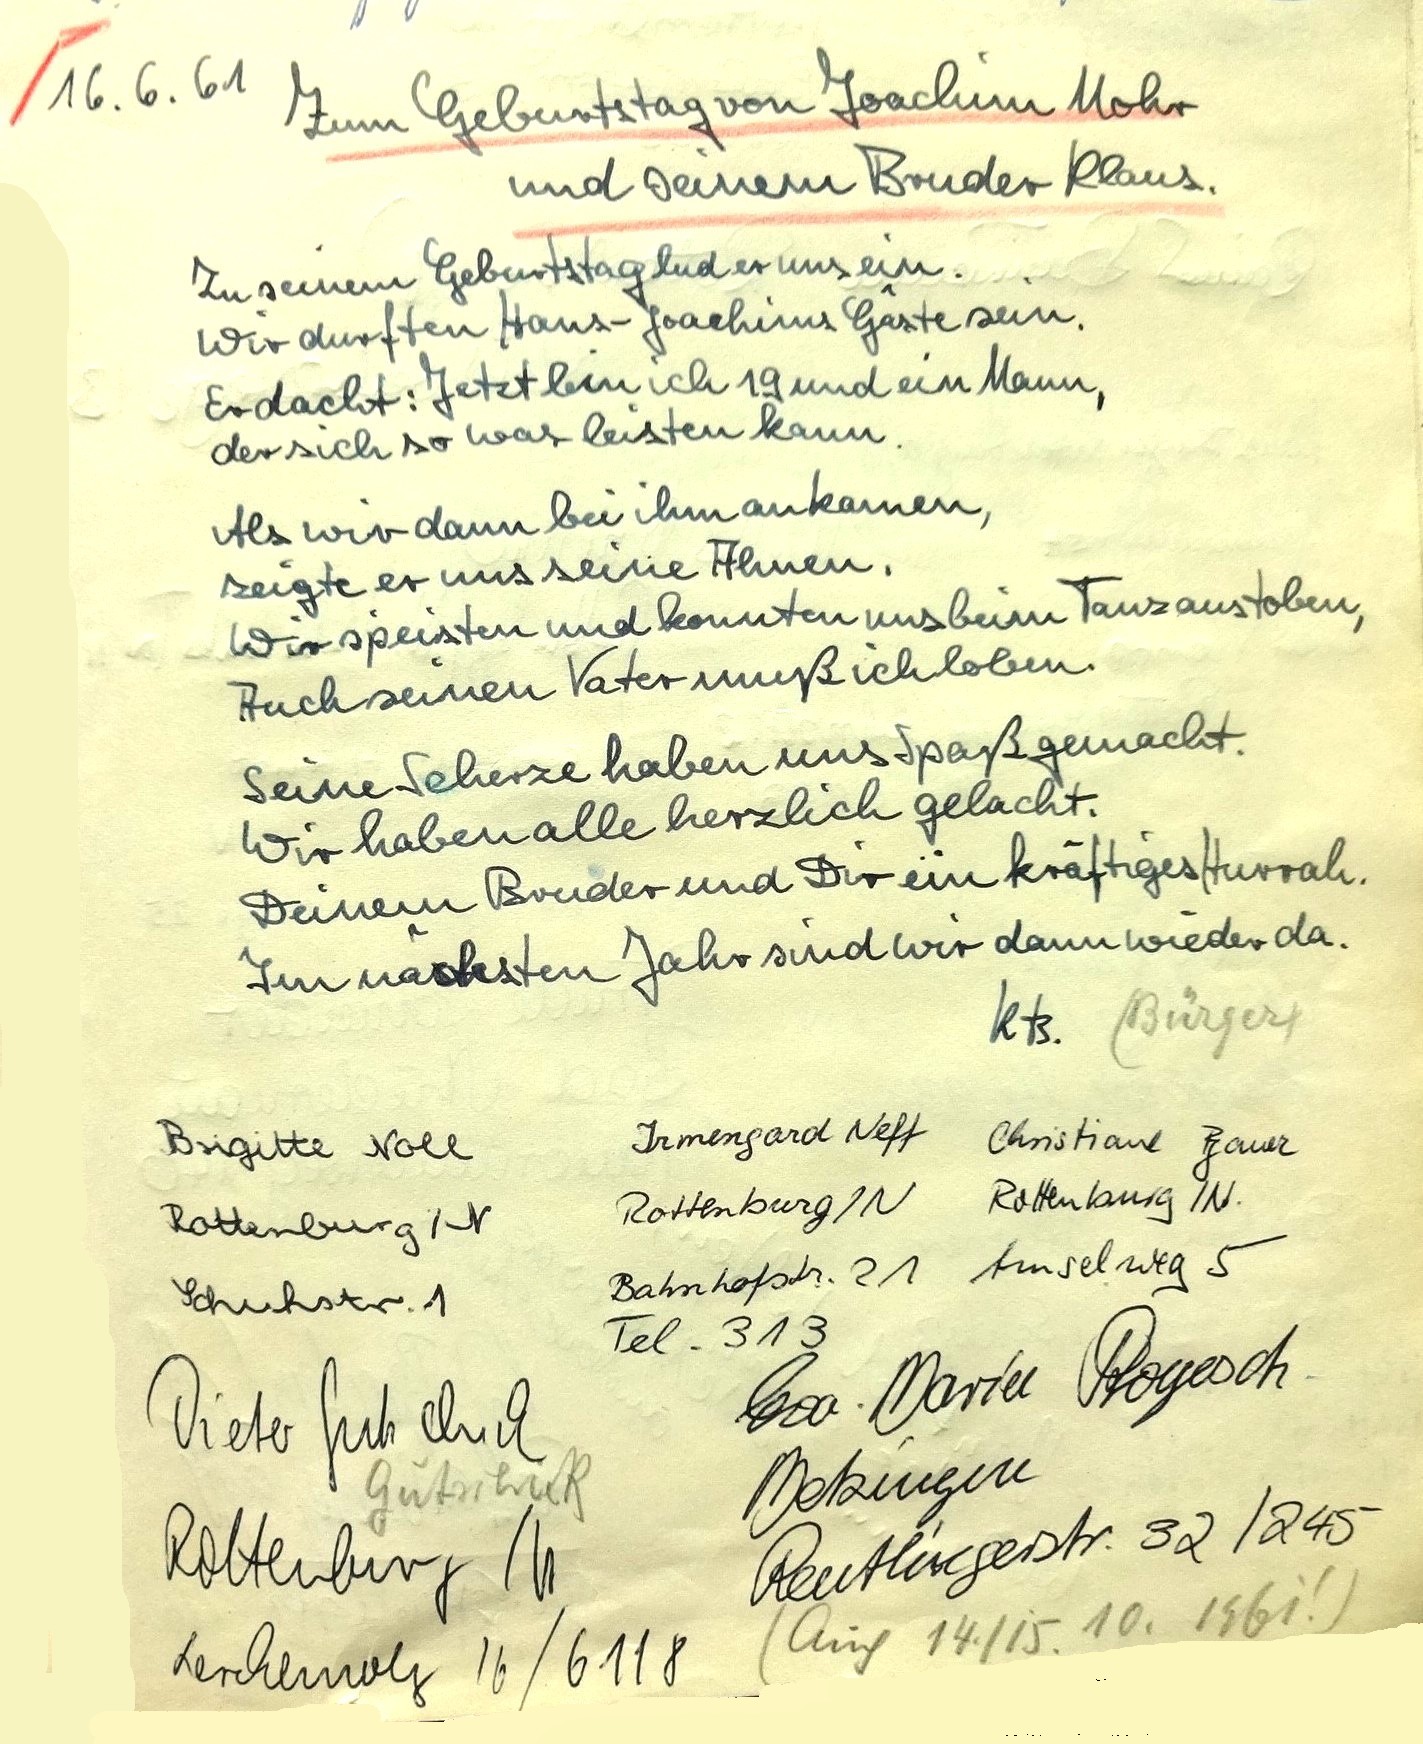 16.6.61 Zum Geburtstag von Joachim Mohr
und seinem Bruder Klaus.
Zu seinem Geburtstag lud er uns ein.
Wir durften Hans-Joachims Gäste sein.
Er dacht: Jetzt bin ich 19 und ein Mann,
der sich so was leisten kann.
Als wir dann bei ihm ankamen,
zeigte er uns seine Ahnen.
Wir speisten und konnten uns beim Tanz austoben,
Auch seinen Vater muß ich loben.
Seine Scherze haben uns Spaß gemacht.
Wir haben alle herzlich gelacht.
Deinem Bruder und Dir ein kräftiges Hurrah.
Im nächsten Jahr sind wir dann wieder da.
(Bürger)
Brigitte Noll
Rottenburg/N
Schuhstr. 1
Irmengard Neff
Rottenburg/N
Bahnhofstr. 21
Tel. 313
Christiane
Rottenburg/N.
Amselweg 5
Dieter Gutschick
Gutschick
Rottenburg/N
16/6118
Eva-Marie
Metzingen
Reutlingerstr. 32/245
14./15. 10. 1961!)